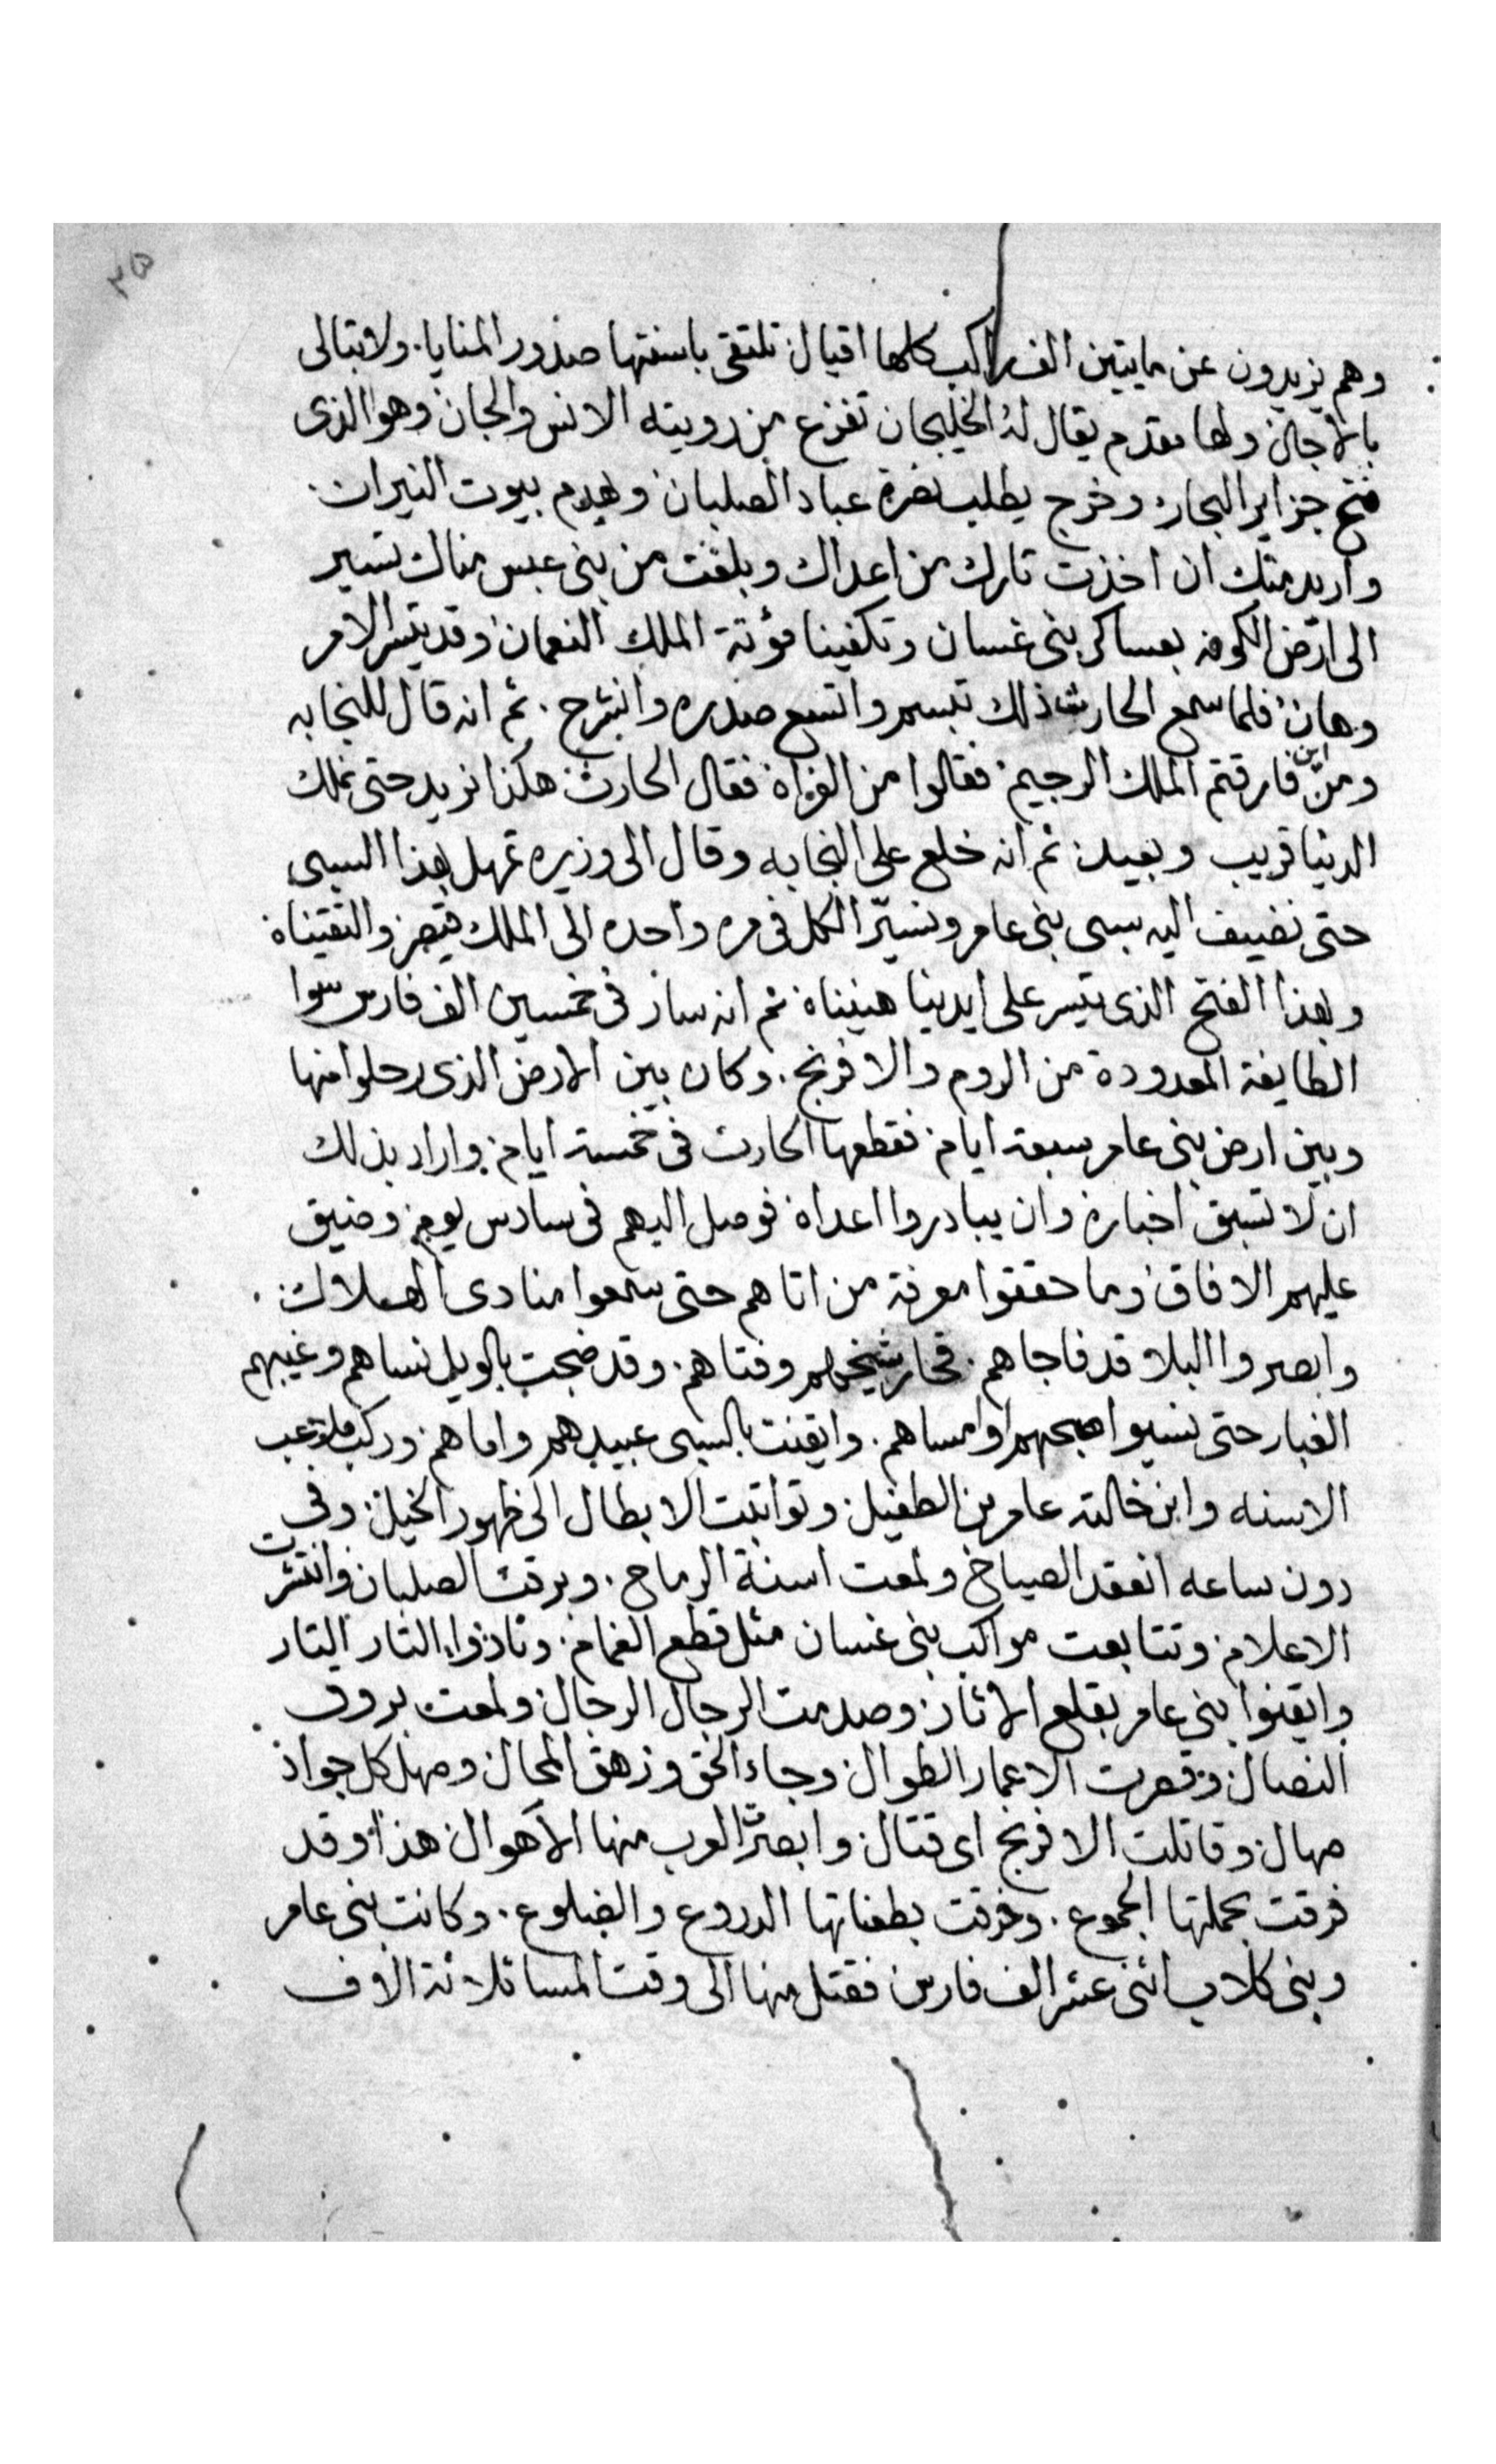 ٣٥
وهم يزيدون عن مايتين الف راكب كلها اقيال تلتقى باسنتها صدور المنايا. ولا تبالى
بالاجال ولها مقدم يقال له الخليجان تفزع من رويته الانس والجان وهو الذى
فتح جزاير البحار وخرج يطلب نصرة عباد الصلبان وهدم بيوت النيران.
واريد منك ان اخذت تارك من اعداك وبلغت من بنى عبس مناك تسير
الى ارض الكوفه بعساكر بنى غسان وتكفينا مؤنة الملك النعمان وقد يتسر الامر
وهان فلما سمع الحارث ذلك تبسم واتسع صدره وانشرح. ثم انه قال للنجابه
ومن اين فارقتم الملك الرجيم فقالوا من الغزاة فقال الحارث هكذا نريد حتى نملك
الدنيا قريب وبعيد ثم انه خلع على النجابه وقال الى وزيره تمهل بهذا السبى
حتى نضيف اليه سبى بنى عامر ونسيّر الكل فى مره واحده الى الملك قيصر والتقيناه
وبهذا الفتح الذى تيسر على ايدينا هنيناه ثم انه سار فى خمسين الف فارس سوا
الطايفة المعدودة من الروم والافرنج. وكان بين الارض الذى رحلوا منها
وبين ارض بنى عامر سبعة ايام فقطعها الحارث فى خمسة ايام واراد بذلك
ان لا تسبق اخباره وان يبادروا اعداه فوصل اليهم فى سادس يوم وضيق
عليهم الافاق وما حققوا معرفة من اتاهم حتى سمعوا منادى الهلاك.
وابصروا البلا قد فاجاهم. فحار شيخهم وفتاهم. وقد ضجت بالويل نساهم وغيبهم
الغبار حتى نسيوا صبحهم او امساهم. وايقنت بالسبى عبيدهم واماهم وركب ملاعب
الاسنه وابن خالته عامر بن الطفيل وتواثبت الابطال الى ظهور الخيل وفى
دون ساعه انعقد الصياح ولمعت اسنة الرماح. وبرقت الصلبان وانتشرت
الاعلام وتتابعت مواكب بنى غسان مثل قطع الغمام. ونادوا التار التار
وايقنوا بنى عامر بقلع الاثار وصدمت الرجال الرجال ولمعت بروق
النصال وقصرت الاعمار الطوال وجاء الحق وزهق المحال وصهل كل جواد
صهال وقاتلت الافرنج اى قتال وابصرت العرب منها الاهوال هذا وقد
فرقت بحملتها الجموع. وخرقت بطعناتها الدروع والضلوع. وكانت بنى عامر
وبنى كلاب اثنى عشر الف فارس فقتل منها الى وقت المسا ثلاثة الاف